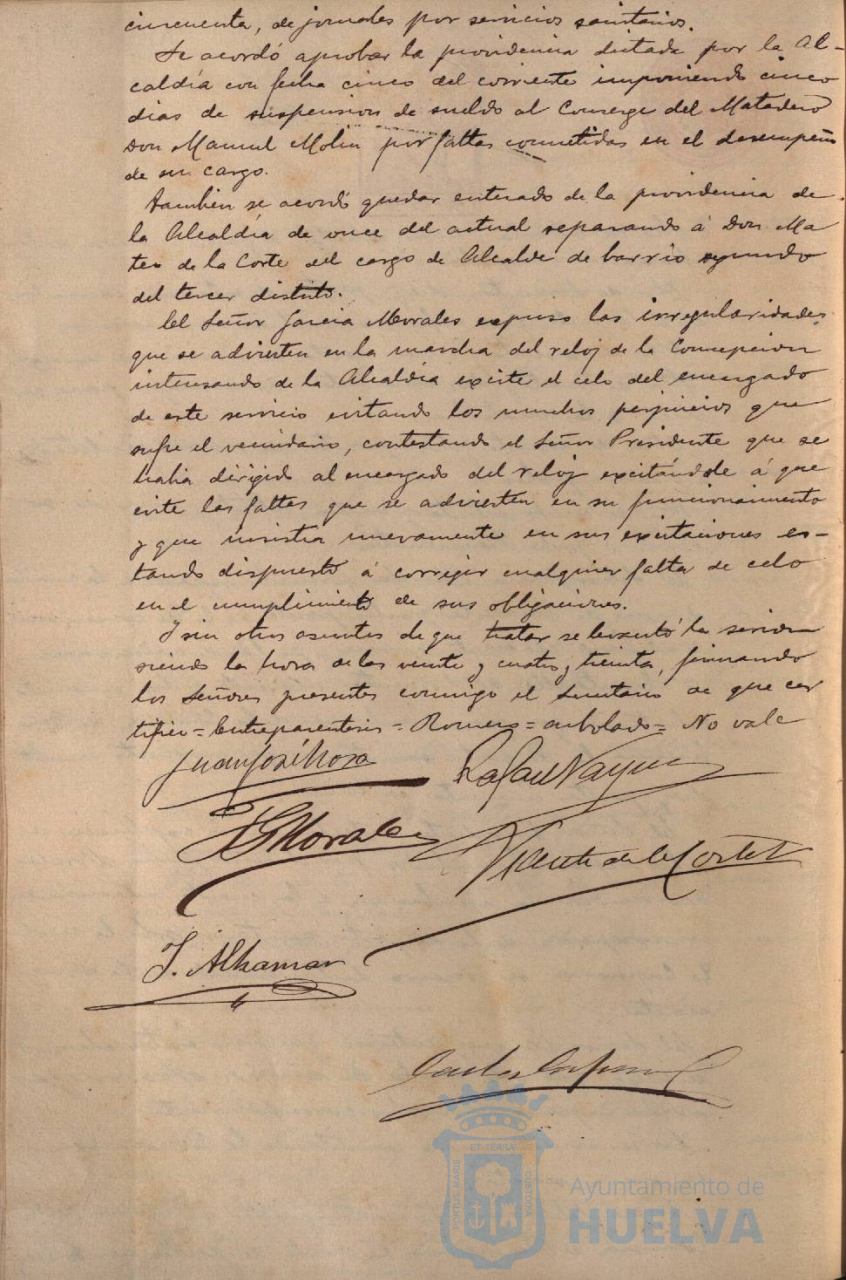 cincuenta, de jornales por servicios sanitarios.
Se acordó aprobar la providencia dictada por la Al-
caldía con fecha cinco del corriente imponiendo cinco
dias de suspension de sueldo al Conserge del Matadero
Don Manuel Molin por faltas cometidas en el desempeño
de su cargo.
Tambien se acordó quedar enterado de la providencia de
la Alcaldía de once del actual separando á Don Ma
teo de la Corte del cargo de Alcalde de barrio segundo
del tercer distrito.
El Señor Garcia Morales expuso las irregularidades
que se advierten en la marcha del reloj de la Concepcion
interesando de la Alcaldía excite el celo del encargado
de este servicio evitando los muchos perjuicios que
sufre el vecindario, contestando el Señor Presidente que se
habia dirigido al encargado del reloj excitándole á que
evite las faltas que se advierten en su funcionamiento
y que insistia nuevamente en sus excitaciones es-
tando dispuesto á corregir cualquier falta de celo
en el cumplimiento de sus obligaciones.
Y sin otros asuntos de que tratar se levantó la sesion
siendo la hora de las veinte y cuatro y treinta, firmando
los Señores presentes conmigo el Secretario de que cer
tifico = Entreparentesis = Romero = enbolado = No vale
Juan José Mora
Rafael
Morales
Vicente de la Corte
J. Alhamar
Carlos
ET TERRÆ
PORTUS MARIS
CUSTODIA
Ayuntamiento de
HUELVA